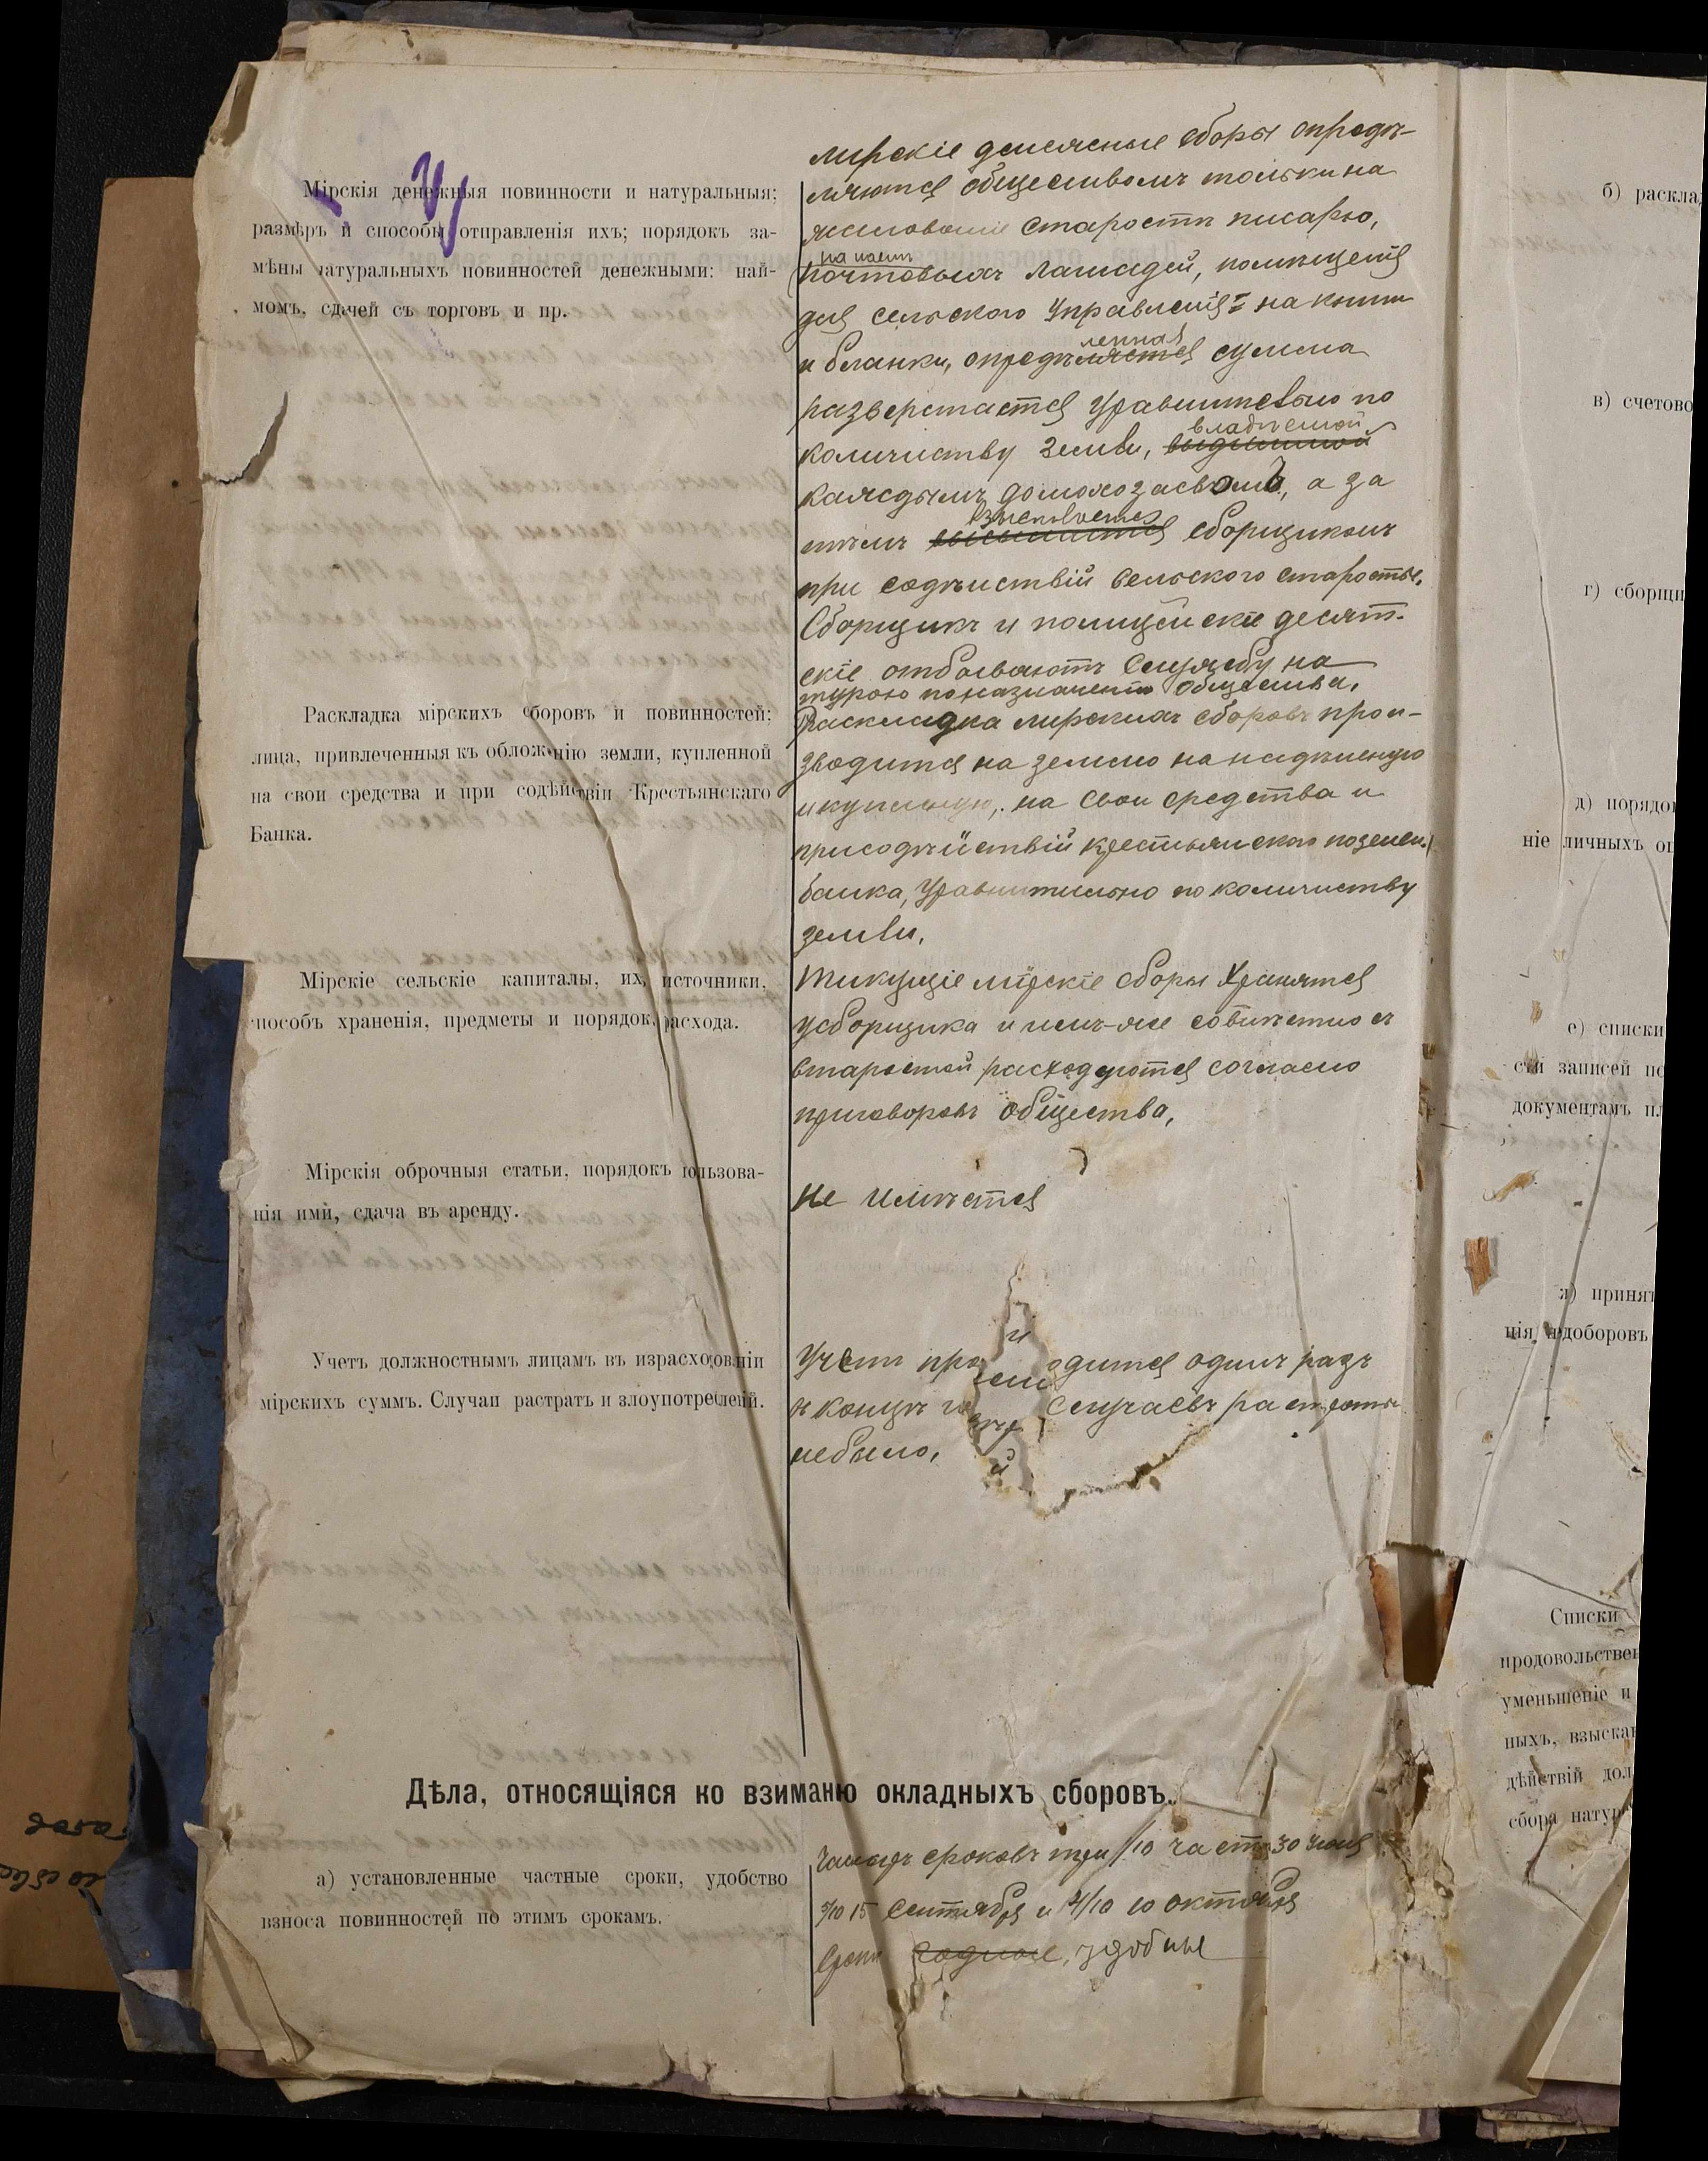 Мірскія денежныя повинности и натуральныя;
размѣръ и способы отправленія ихъ; порядокъ за-
мѣны натуральныхъ повинностей денежными: най-
момъ, сдачей съ торговъ и пр.
мирскіе денежные сборы опредѣ-
ляются обществомъ только на
жалованіе старостѣ писарю,
на наемъ
почтовыхъ лошадей, помѣщенія
для сельского управленія и на книги
ленная
и бланки, опредѣляется сумма
разверстается уравнительно по
владѣемой
количеству земли,
каждымъ домохозяевомъ, а за
взыскивается
тѣмъ сборщикомъ
при содѣиствіи сельского старосты.
Сборщикъ и полицейскіе десят-
скіе отбываютъ службу на
турою по назначенію общества.
Раскладка мірскихъ сборовъ и повинностей;
лица, привлеченныя къ обложенію земли, купленной
на свои средства и при содѣйствіи Крестьянскаго
Банка.
Раскладка мирскихъ сборовъ прои-
зводится на землю на надѣльную
и купленую, на свои средства и
присодѣйствій крестьянскаго поземел.
банка, уравнительно по количиству
земли.
Мірскіе сельскіе капиталы, их источники,
способъ храненія, предметы и порядок расхода.
Тикущіе мірскіе сборы хранятся
усборщика и имъ-же совмѣстно съ
старостой расходуются согласно
приговоровъ общества.
Мірскія оброчныя статьи, порядокъ пользова-
нія ими, сдача въ аренду.
Не имѣется
Учетъ должностнымъ лицамъ въ израсходованіи
мірскихъ суммъ. Случаи растратъ и злоупотребленій.
Учетъ про одится одинъ разъ
в концѣ го Случаевъ растраты
небыло.
Дѣла, относящіяся ко взиманію окладныхъ сборовъ.
а) установленные частные сроки, удобство
взноса повинностей по этимъ срокамъ.
сроковъ три 1/10 част 30 июня
5/10 15 Сентября и 4/10 10 октября
Сроки удобные
б) расклад
в) счетово
г) сборщи
д) порядо
ніе личныхъ
е) списки
сти записей
документамъ
принят
нія недоборовъ
Списки
продовольствен
уменьшеніе и
ныхъ, взыска
дѣйствій дол
сбора натур